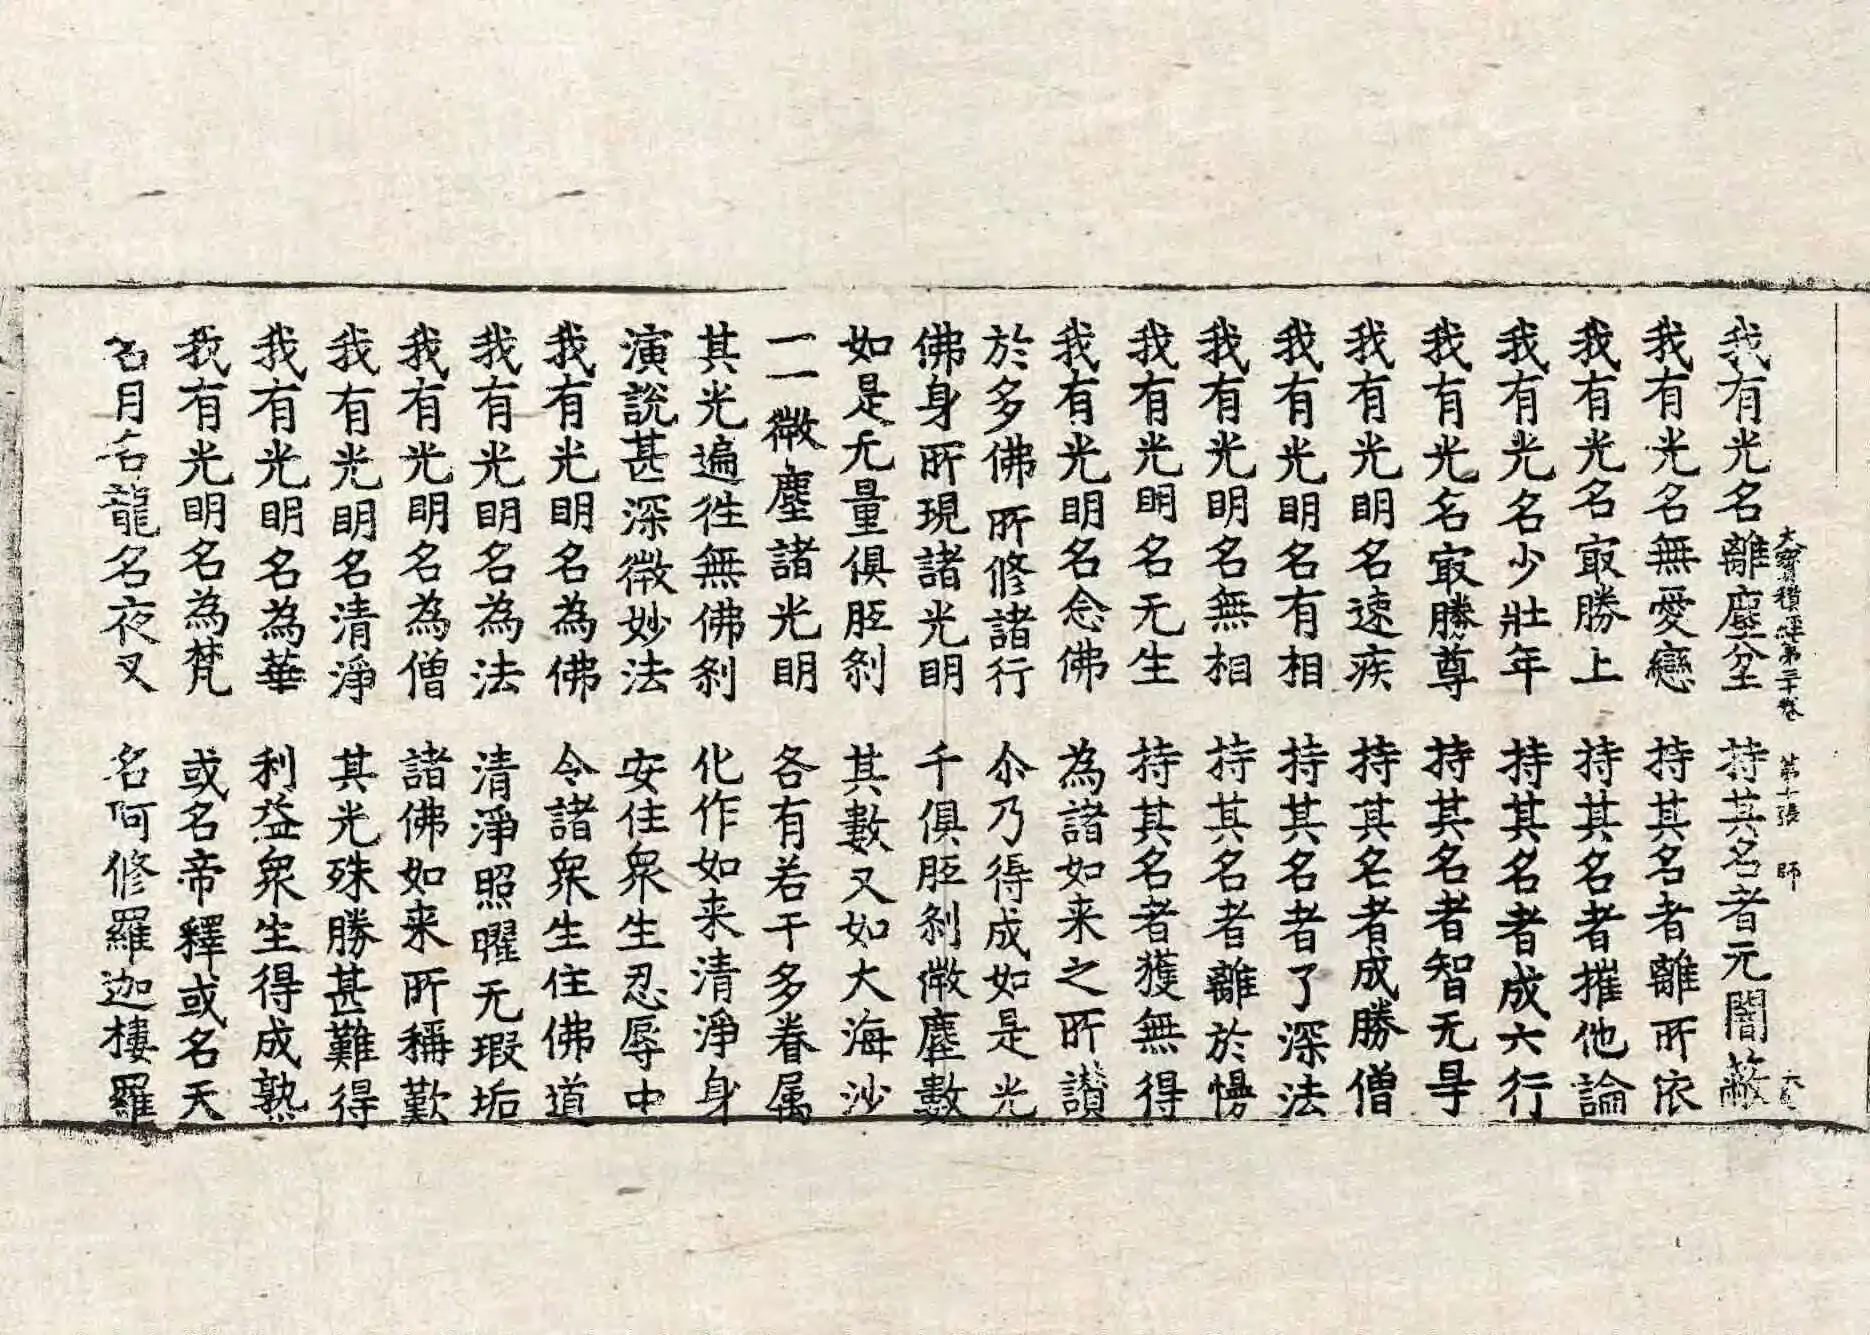 大寶積經第三十卷 第十張 師
我有光名離塵坌 持其名者无闇蔽
我有光名無愛戀 持其名者離所依
我有光名㝡勝上 持其名者摧他論
我有光名少壯年 持其名者成六行
我有光名㝡勝尊 持其名者智无㝵
我有光明名速疾 持其名者成勝僧
我有光明名有相 持其名者了深法
我有光明名無相 持其名者離於慢
我有光明名无生 持其名者獲無得
我有光明名念佛 為諸如来之所讃
於多佛所修諸行 尒乃得成如是光
佛身所現諸光明 千俱胝刹微塵數
如是无量俱胝刹 其數又如大海沙
一一微塵諸光明 各有若干多眷属
其光遍往無佛刹 化作如来清淨身
演說甚深微妙法 安住衆生忍辱中
我有光明名為佛 令諸衆生住佛道
我有光明名為法 清淨照曜无瑕垢
我有光明名為僧 諸佛如来所稱歎
我有光明名清淨 其光殊勝甚難得
我有光明名為華 利益衆生得成熟
我有光明名為梵 或名帝釋或名天
名月名龍名夜叉 名阿修羅迦樓羅